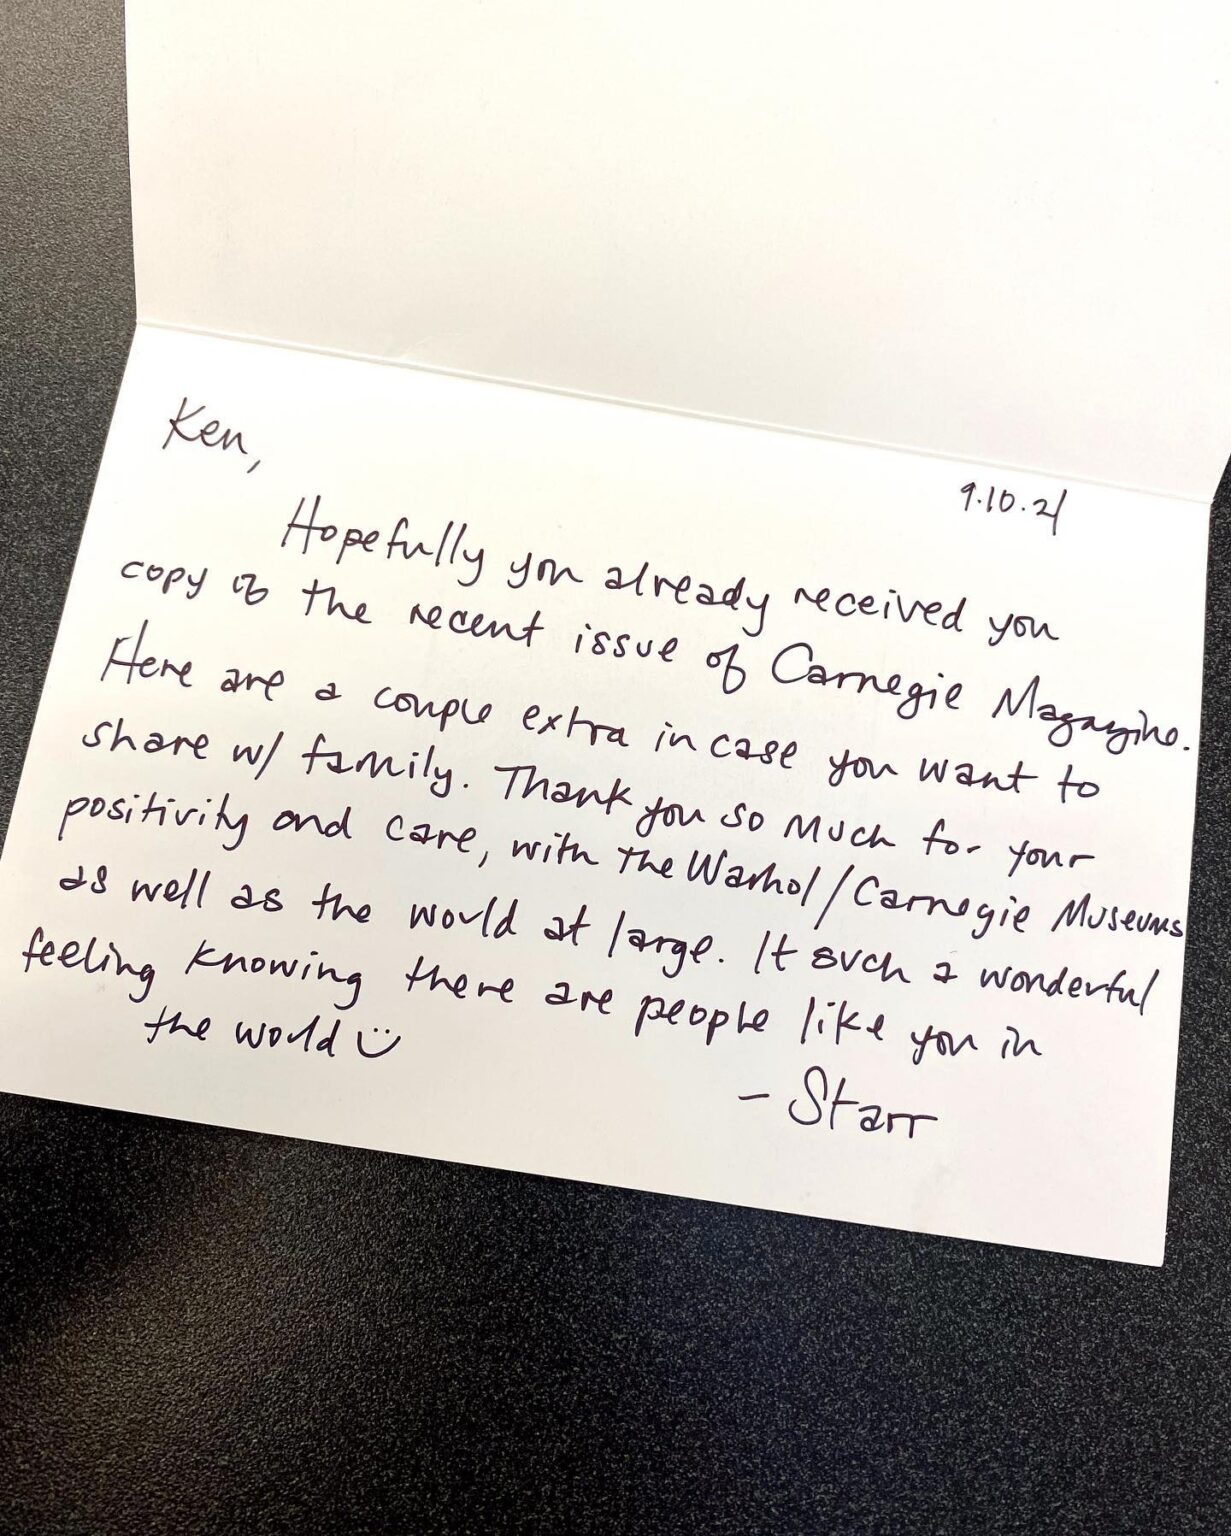 Ken,
9.10.21
Hopefully you already received you
copy of the recent issue of Carnegie Magazine.
Here are a couple extra in case you want to
share w/ family. Thank you so much for your
positivity and care, with the Warhol/Carnegie Museums
as well as the world at large. It such a wonderful
feeling knowing there are people like you in
the world :)
- Starr